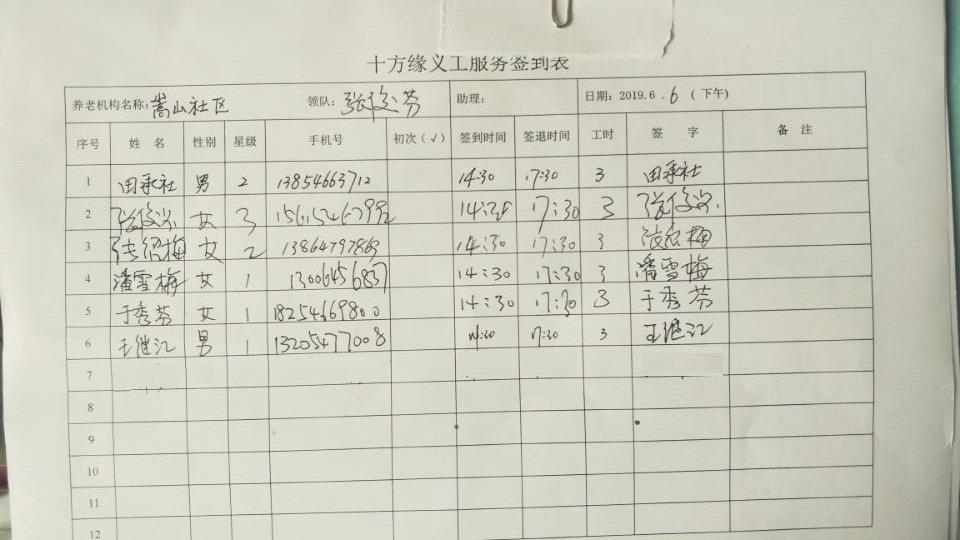 十方缘义工服务签到表
养老机构名称：嵩山社区 领队： 助理： 日期：2019.6.6 (下午)
序号 姓名 性别 星级 手机号 初次（√） 签到时间 签退时间 工时 签字 备注
1 田承社 男 2 13854663712 14:30 17:30 3 田承社
2 女 3 17:30 3
3 张绍梅 女 2 13864797869 14:30 17:30 3
4 潘雪梅 女 1 13006456837 14:30 17:30 3 潘雪梅
5 于秀芬 女 1 18254669800 14:30 17:30 3 于秀芬
6 王继江 男 1 13205477008 14:30 17:30 3 王继江
7
8
9
10
11
12